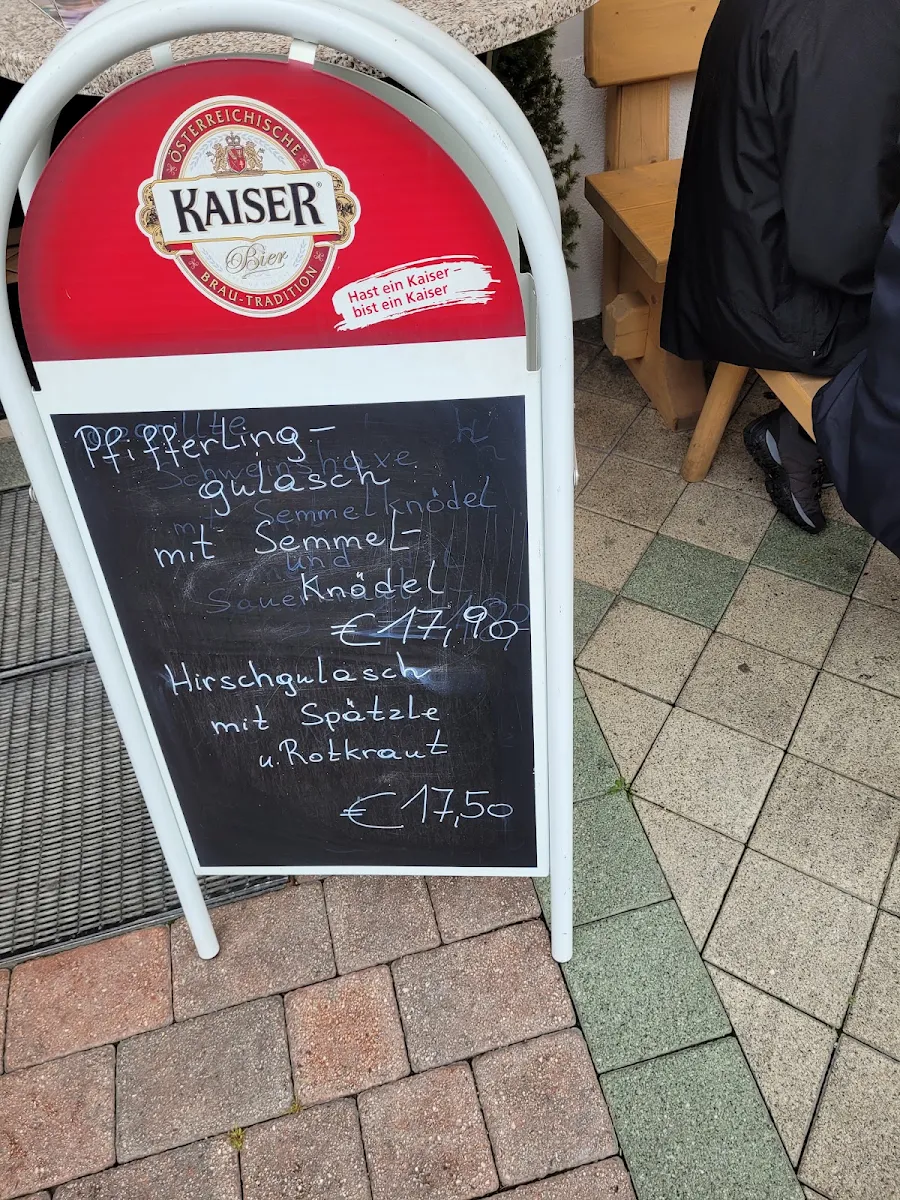 ÖSTERREICHISCHE
KAISER®
Bier
BRAU-TRADITION
Hast ein Kaiser –
bist ein Kaiser
Pfifferling-
gulasch
mit Semmel-
Knödel
€ 17,90
Hirschgulasch
mit Spätzle
u. Rotkraut
€ 17,50